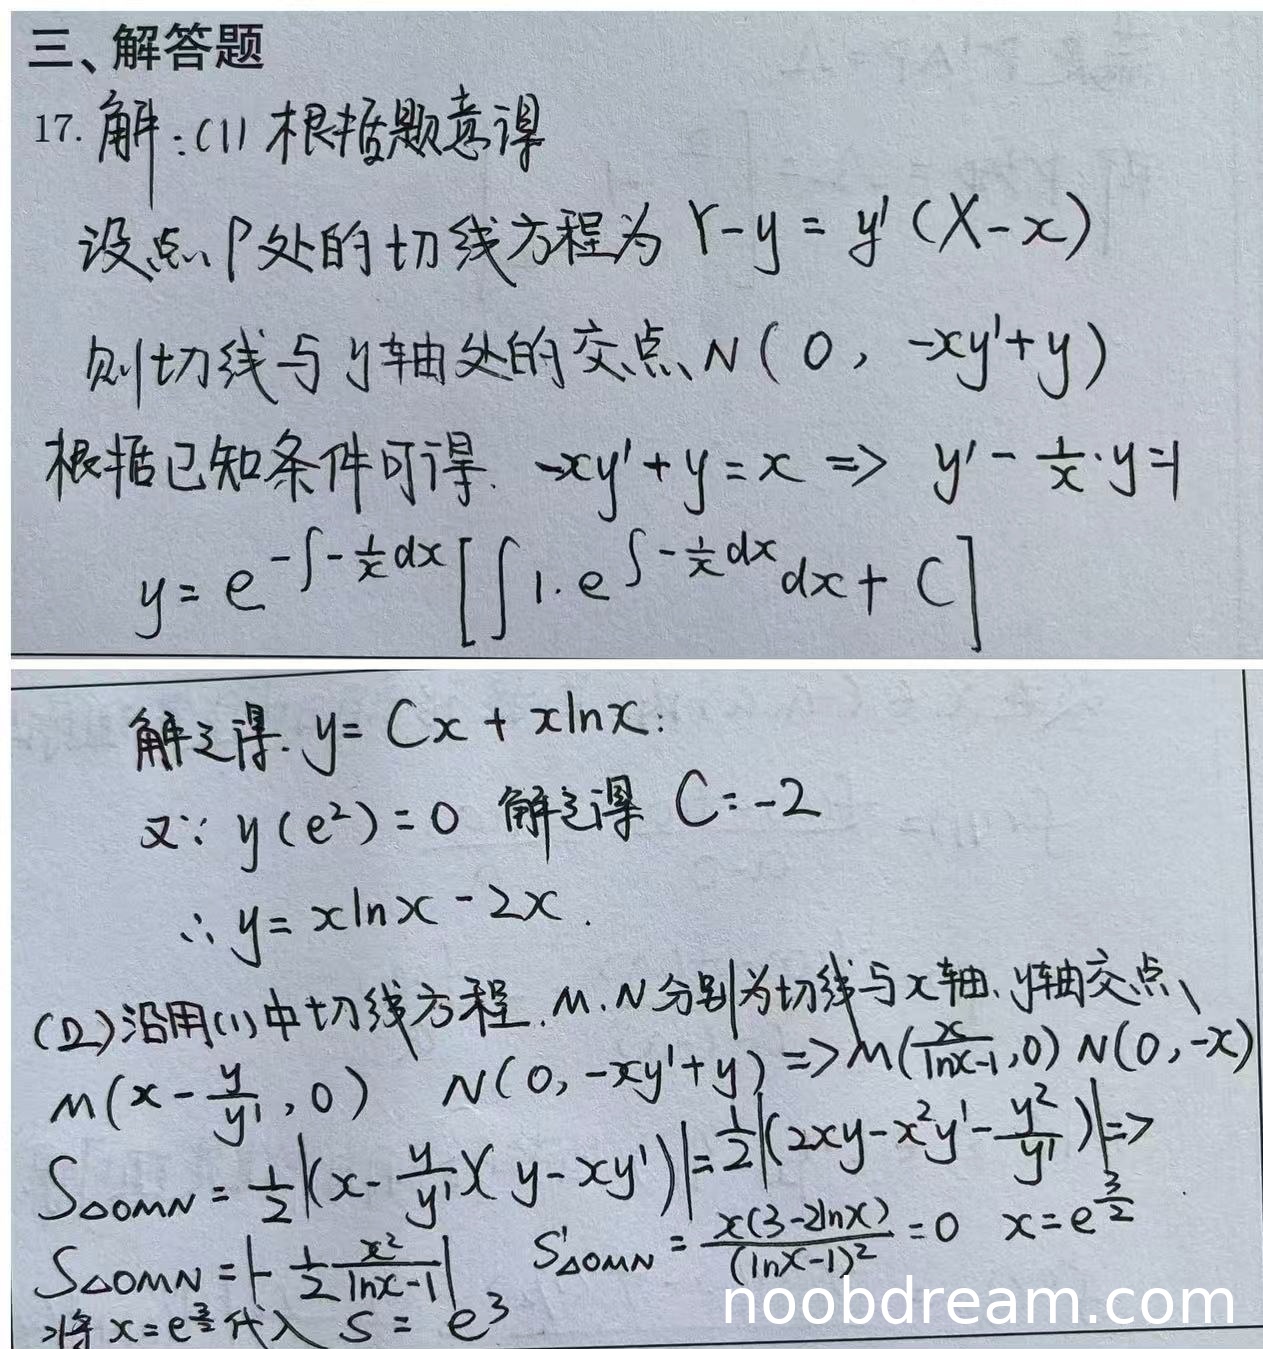 三、解答题
17. 解：(1) 根据题意得
设点P处的切线方程为 Y-y = y'(X-x)
则切线与y轴处的交点N(0, -xy'+y)
根据已知条件可得. -xy'+y=x => y' - \frac{1}{x}·y=1
y= e^{-∫-\frac{1}{x}dx}[∫1·e^{∫-\frac{1}{x}dx}dx+C]
解之得. y= Cx + xlnx:
又∵ y(e²)=0 解之得 C=-2
∴ y= xlnx - 2x.
(2)沿用(1)中切线方程. M.N分别为切线与x轴、y轴交点、
M(x-\frac{y}{y'},0) N(0,-xy'+y) => M(\frac{x}{lnx-1},0) N(0,-x)
S△OMN = \frac{1}{2}|(x-\frac{y}{y'})(y-xy')| = \frac{1}{2}|(2xy-x²y'-\frac{y²}{y'})| =>
S△OMN = |-\frac{1}{2}\frac{x²}{lnx-1}| S'△OMN = \frac{x(3-2lnx)}{(lnx-1)²} = 0 x=e^{\frac{3}{2}}
将 x=e^{\frac{3}{2}}代入 S = e³
noobdream.com